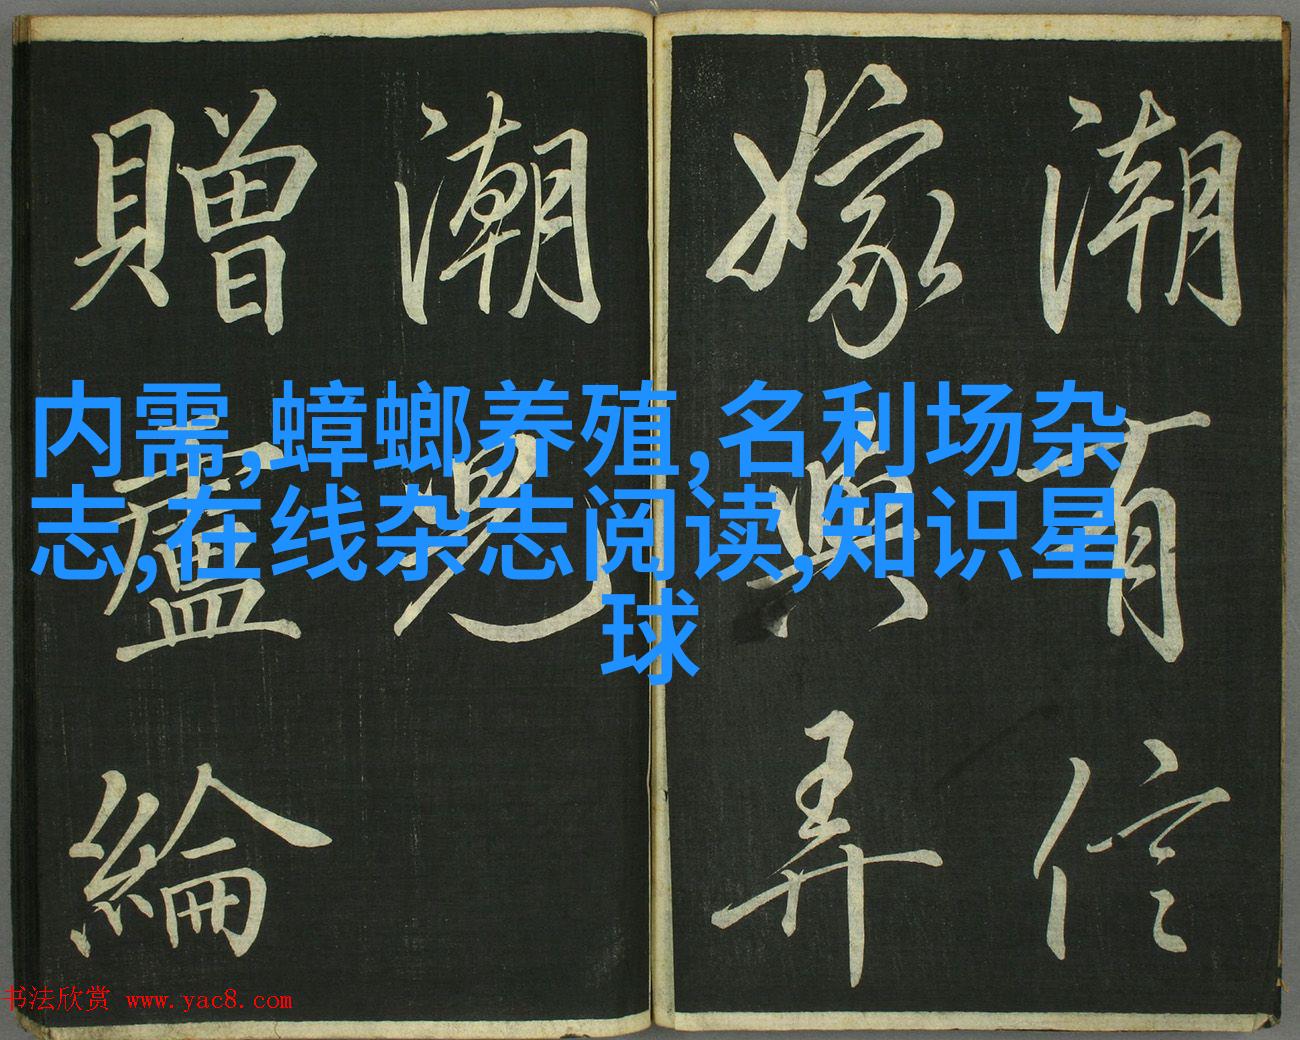 潮有信
嫁與弄
潮兒
贈盧綸
内需,蟑螂养殖,名利场杂
志,在线杂志阅读,知识星
球
书法欣赏 www.yac8.com